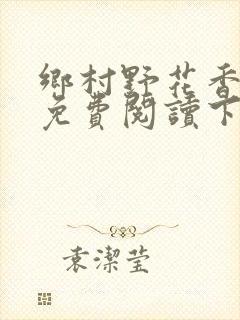 鄉村野花香
免費閱讀下
袁潔莹